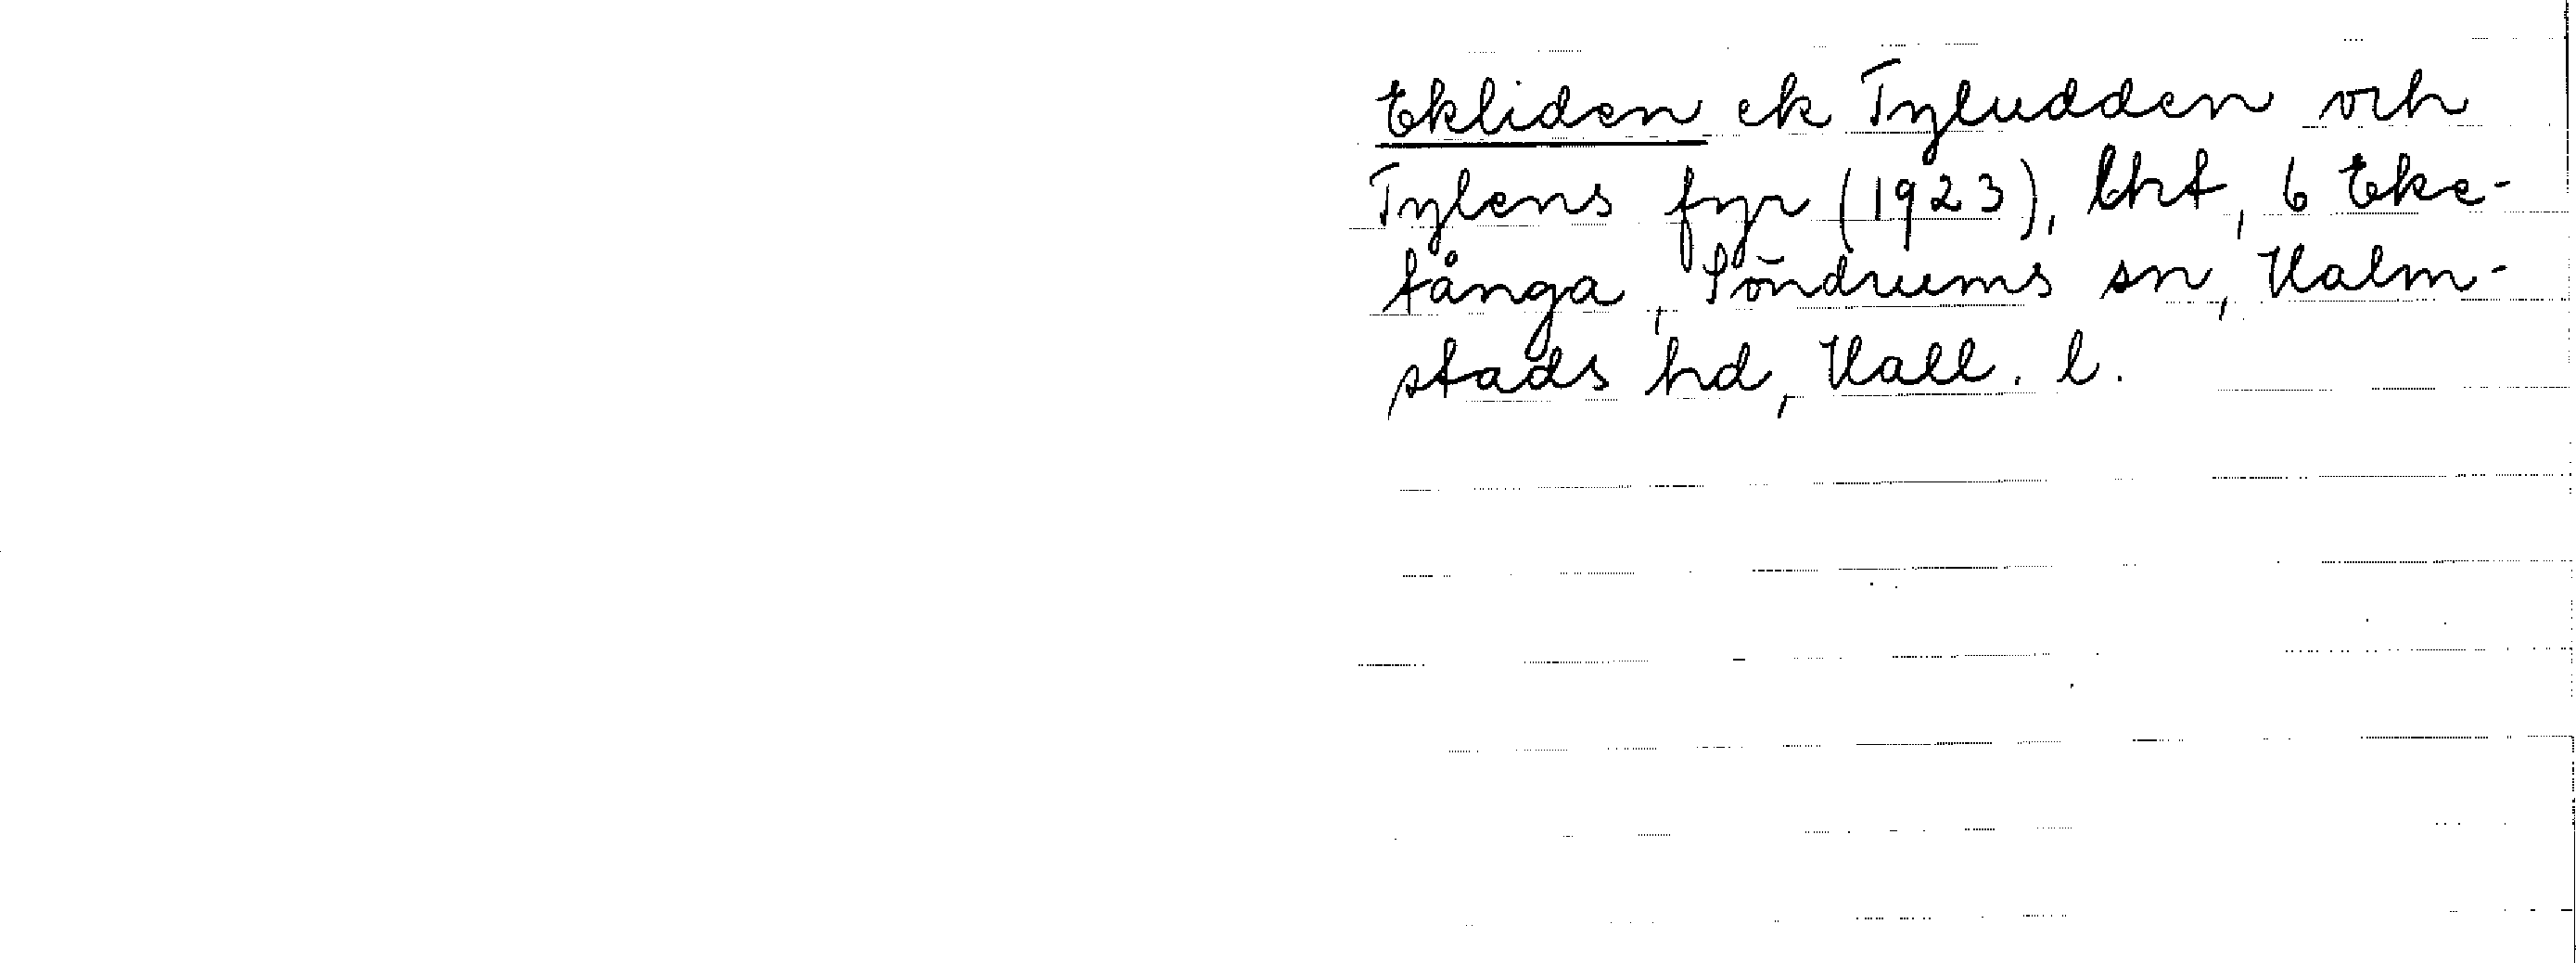 Ekliden ek Tyludden och
Tylens fyr (1923), lht, 6 Eke-
tånga, Söndrums sn, Halm-
stads hd, Hall. l.